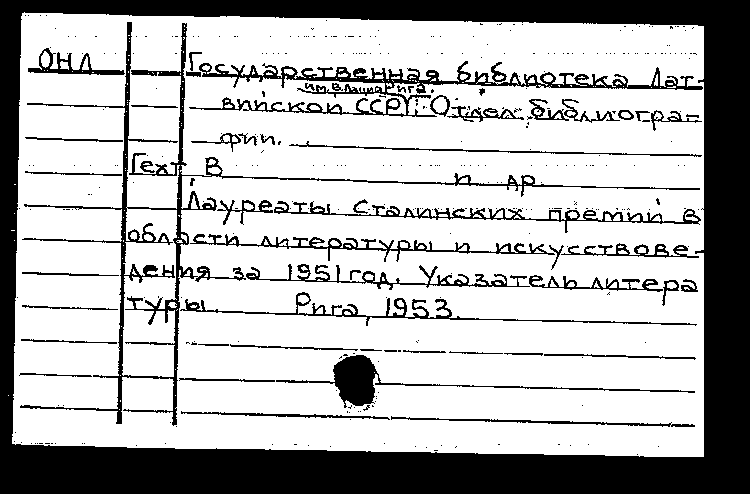 ОНЛ Государственная библиотека Лат-
им. В. Лациса Рига.
вийской ССР. Отдел библиогра-
фии.
Гехт В и др.
Лауреаты Сталинских премий в
области литературы и искусствове-
дения за 1951 год. Указатель литера
туры. Рига, 1953.